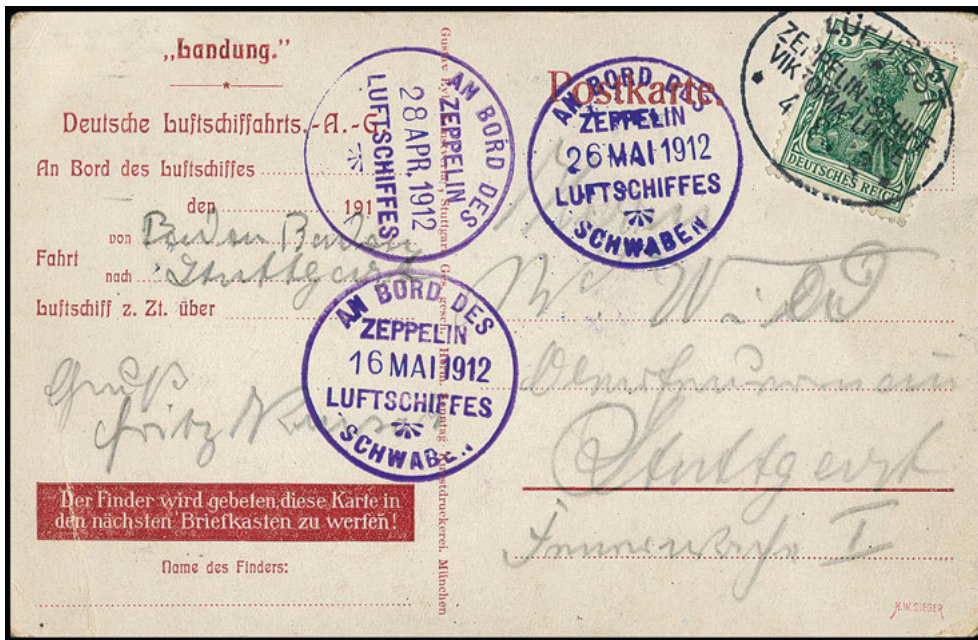 „Landung.”
Deutsche Luftschiffahrts.-A.-G.
An Bord des Luftschiffes
den 191
Fahrt
von Baden Baden
nach Stuttgart
Luftschiff z. Zt. über
Gruß
Fritz
Der Finder wird gebeten, diese Karte in
den nächsten Briefkasten zu werfen!
Name des Finders:
AM BORD DES
ZEPPELIN
28 APR. 1912
LUFTSCHIFFES
AM BORD DES
ZEPPELIN
16 MAI 1912
LUFTSCHIFFES
SCHWABEN
Stuttgart. Ges. gesch. Kunstdruckerei. München
Postkarte.
AN BORD DES
ZEPPELIN
26 MAI 1912
LUFTSCHIFFES
SCHWABEN
LUFTPOST
ZEPPELIN-SCHIFF
VIKTORIA-LUISE
5 5
DEUTSCHES REICH
Stuttgart
Feuerwache I
H.W. SIEGER